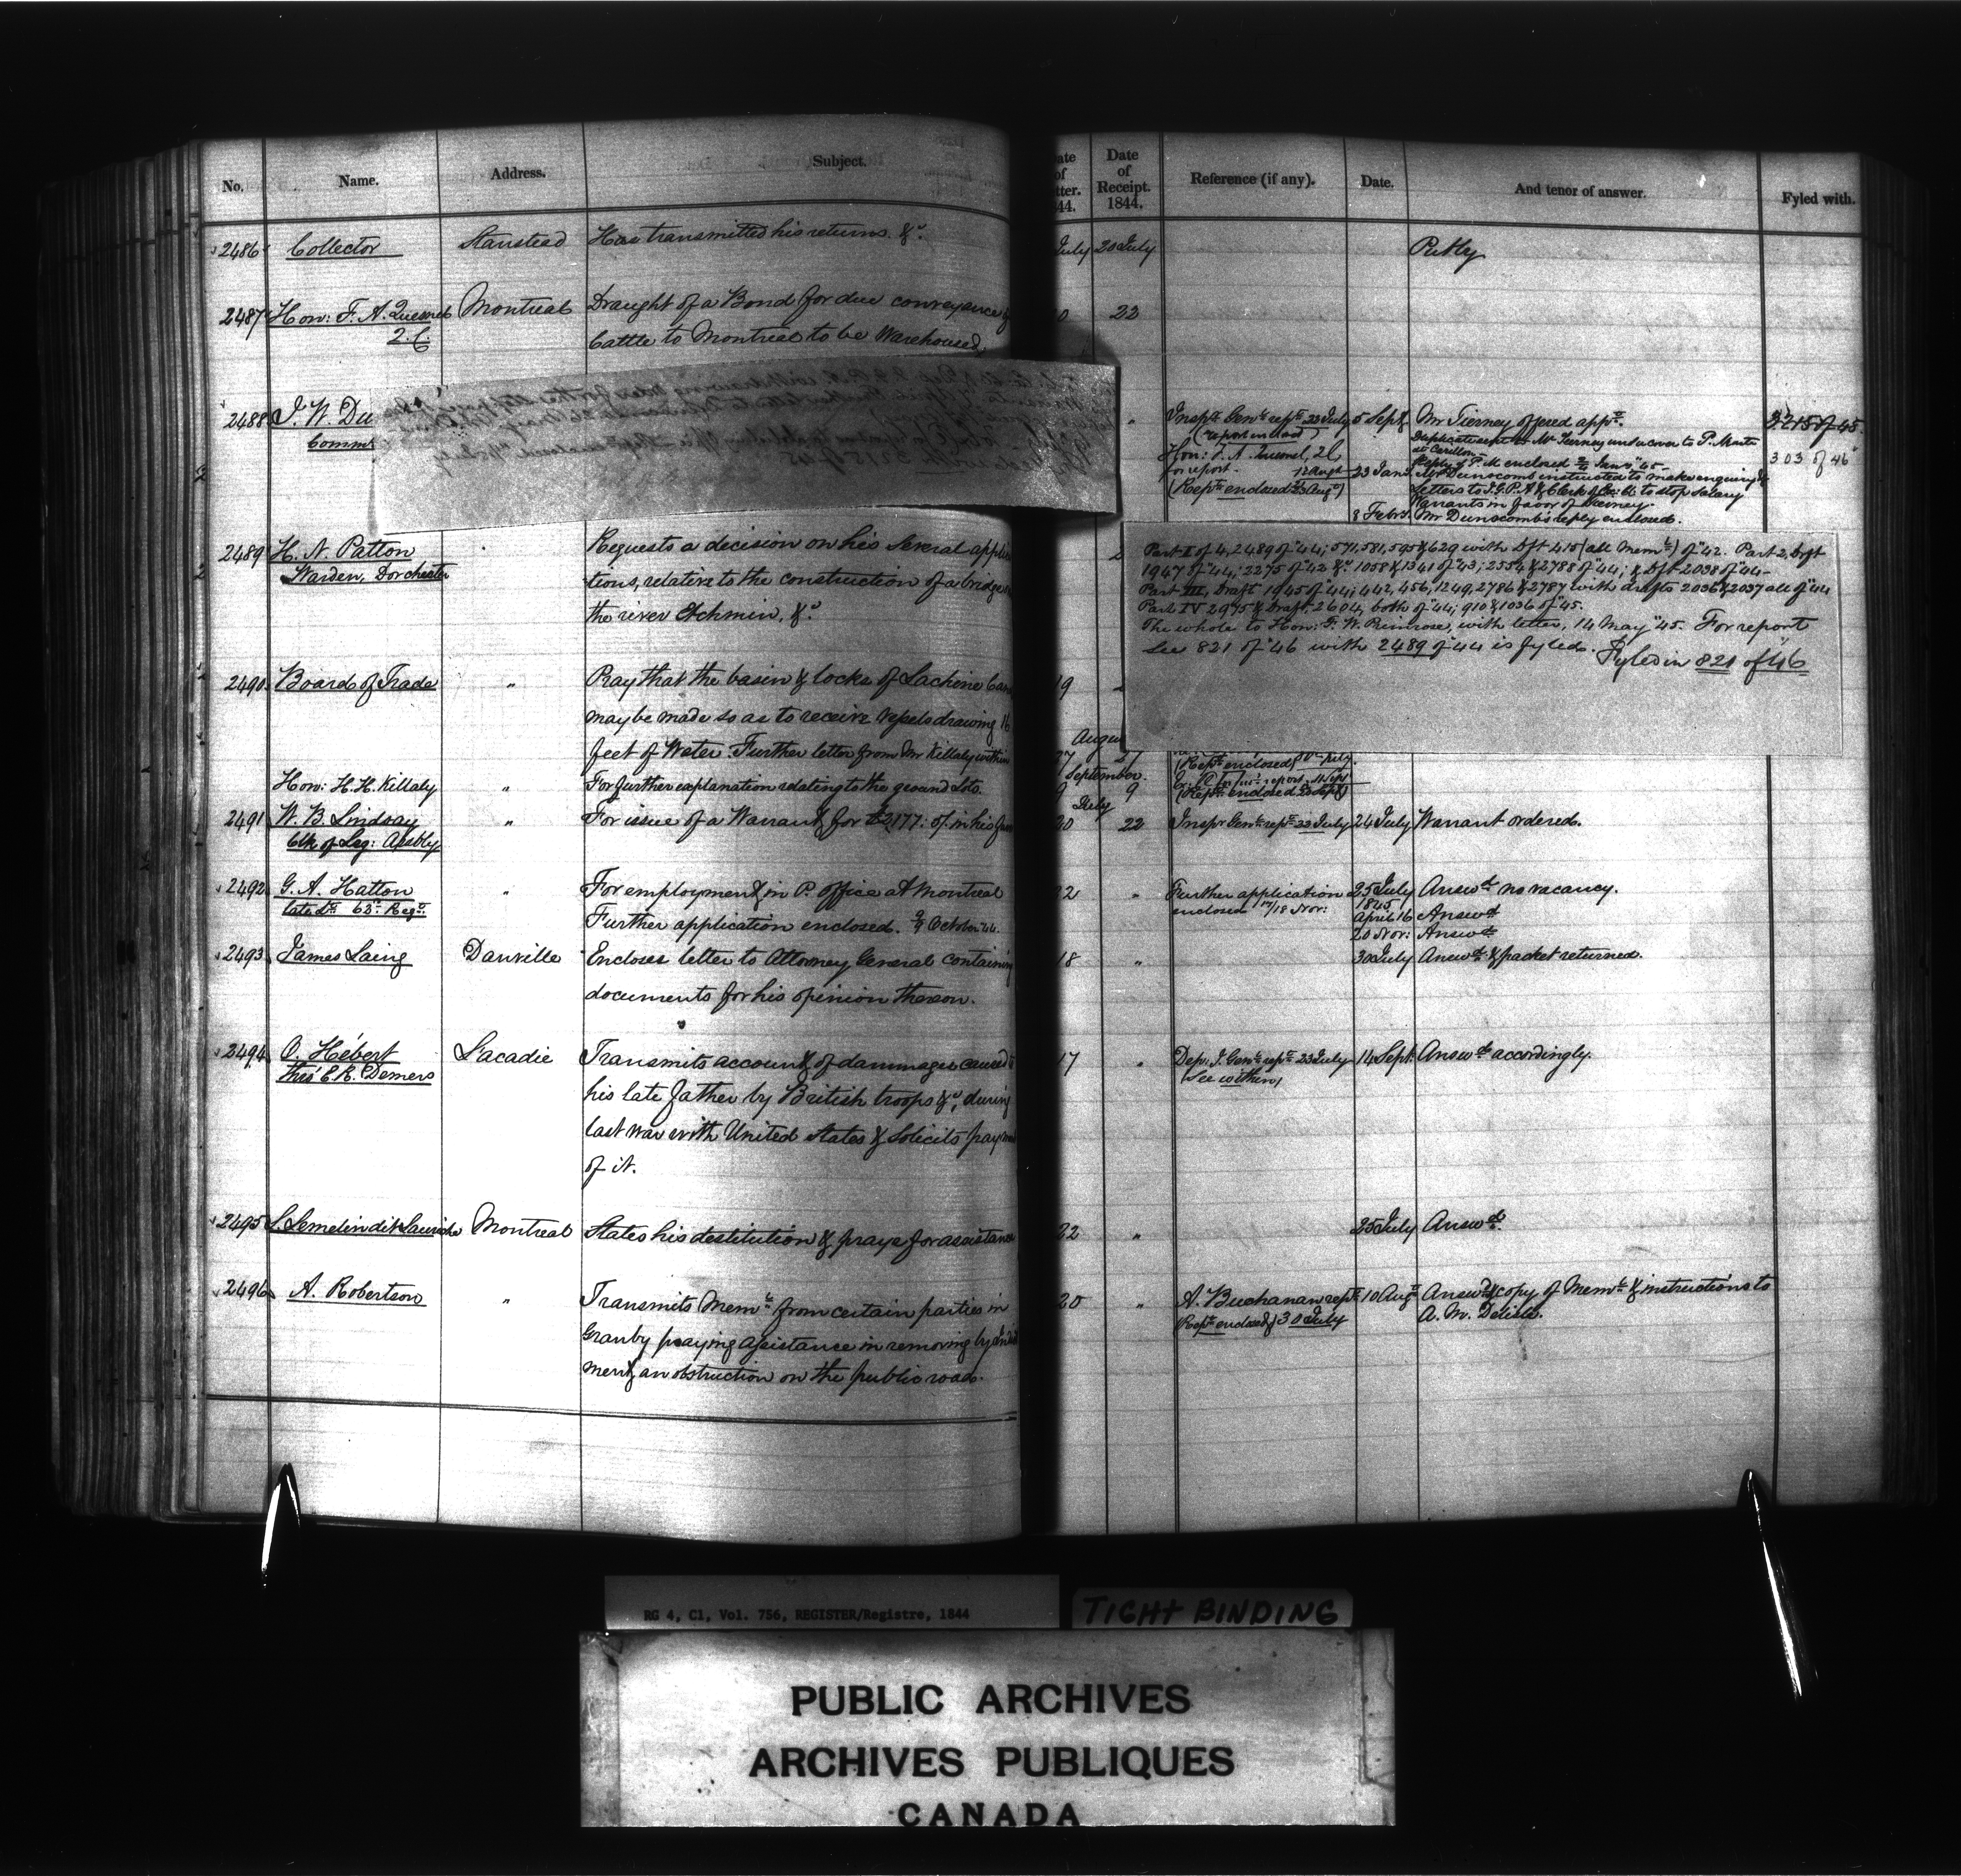 No. Name. Address. Subject.
2486 Collector Stanstead Has transmitted his returns &c.
2487 Hon: F. A. Quesnel Montreal Draught of a Bond for due conveyance of
2. C. Cattle to Montreal to be Warehoused.
2488 J. W. Du
Comm
2489 H. N. Patton Requests a decision on his several applica
Warden, Dorchester tions, relative to the construction of a bridge
the river Etchmin, &c
2490 Board of Trade " Pray that the basin & locks of Lachine
may be made so as to receive Vessels drawing 16
feet of Water. Further letter from Mr Killaly within
Hon: H. H. Killaly " For further explanation relating to the ground lots.
2491 W. B. Lindsay " For issue of a Warrant for £2177: of. in his
Clk of Leg: Assbly
2492 G. A. Hatton " For employment in P. Office at Montreal
late Lt 63rd Regt. Further application enclosed. 9 October 44.
2493 James Laing Danville Encloses letter to Attorney General containing
documents for his opinion thereon.
2494 O. Hébert L'acadie Transmits account of dammages caused
thro' E. R. Demers his late father by British troops &c, during
last war with United States & solicits paym
of it.
2495 L. Lemelin dit Montreal States his destitution & prays for assistance
2496 A. Robertson " Transmits Meml. from certain parties in
Granby praying assistance in removing by
ment, an obstruction on the public road.
ate of tter. 44. Date of Receipt. 1844. Reference (if any). Date. And tenor of answer. Fyled with.
July 20 July Putby
22
" Inspr. Genls rept. 23 July 5 Sept. Mr Tierney offered appt. 3215 of 45.
(report enclosed) Duplicate sent to Mr Tierney under cover to P. Master
at Carillon.
Hon: F. A. Quesnel, 2 C Reply of P. M enclosed Jan "45 303 of 46
for report. 12 Augt 23 Jan Mr Dunscomb instructed to make enquiry &
(Rept. enclosed 23 Augt) Letters to I. G. P. A & Clerk of Ex: C. to stop salary
Warrants in favor of Tierney.
8 Febr. Mr Dunscomb's reply enclosed.
Part I of 4, 2489 of "44; 571, 581, 595 & 629 with Dft 415 (all Meml.) of "42. Part 2, Drft
1947 of "44; 2275 of "42 &c 1058 & 1341 of "43; 2554 & 2788 of "44; & Dft 2038 of "44-
Part III, Draft, 1945 of "44; 442, 456, 1249, 2786 & 2787 with drafts 2036 & 2037 all of "44
Part IV 2975 & Draft, 2604, both of "44; 910 & 1036 of "45.
The whole to Hon: F. W. Primrose, with letter, 14 May "45. For report
See 821 of "46 with 2489 of "44 is fyled. Fyled in 821 of "46
19
August
27 27 (Rept. enclosed) 30th July.
September.
9 9 (Rept. enclosed Sept)
July
20 22 Inspr Genls rept. 22 July 24 July Warrant ordered.
22 " Further application 25 July Answd. no vacancy.
enclosed 17/18 Nov: 1845
April 16 Answd
20 Nov: Answd
18 " 30 July Answd. & packet returned.
17 " Dep: I. Genls rept. 23 July 14 Sept. Answd. accordingly.
(See within)
22 " 25 July Answd.
20 " A. Buchanan rept. 10 Augt Answd & copy of Meml. & instructions to
(Rept. enclosed) 30 July A. M. Delisle.
RG 4, C1, Vol. 756, REGISTER/Registre, 1844
TIGHT BINDING
PUBLIC ARCHIVES
ARCHIVES PUBLIQUES
CANADA